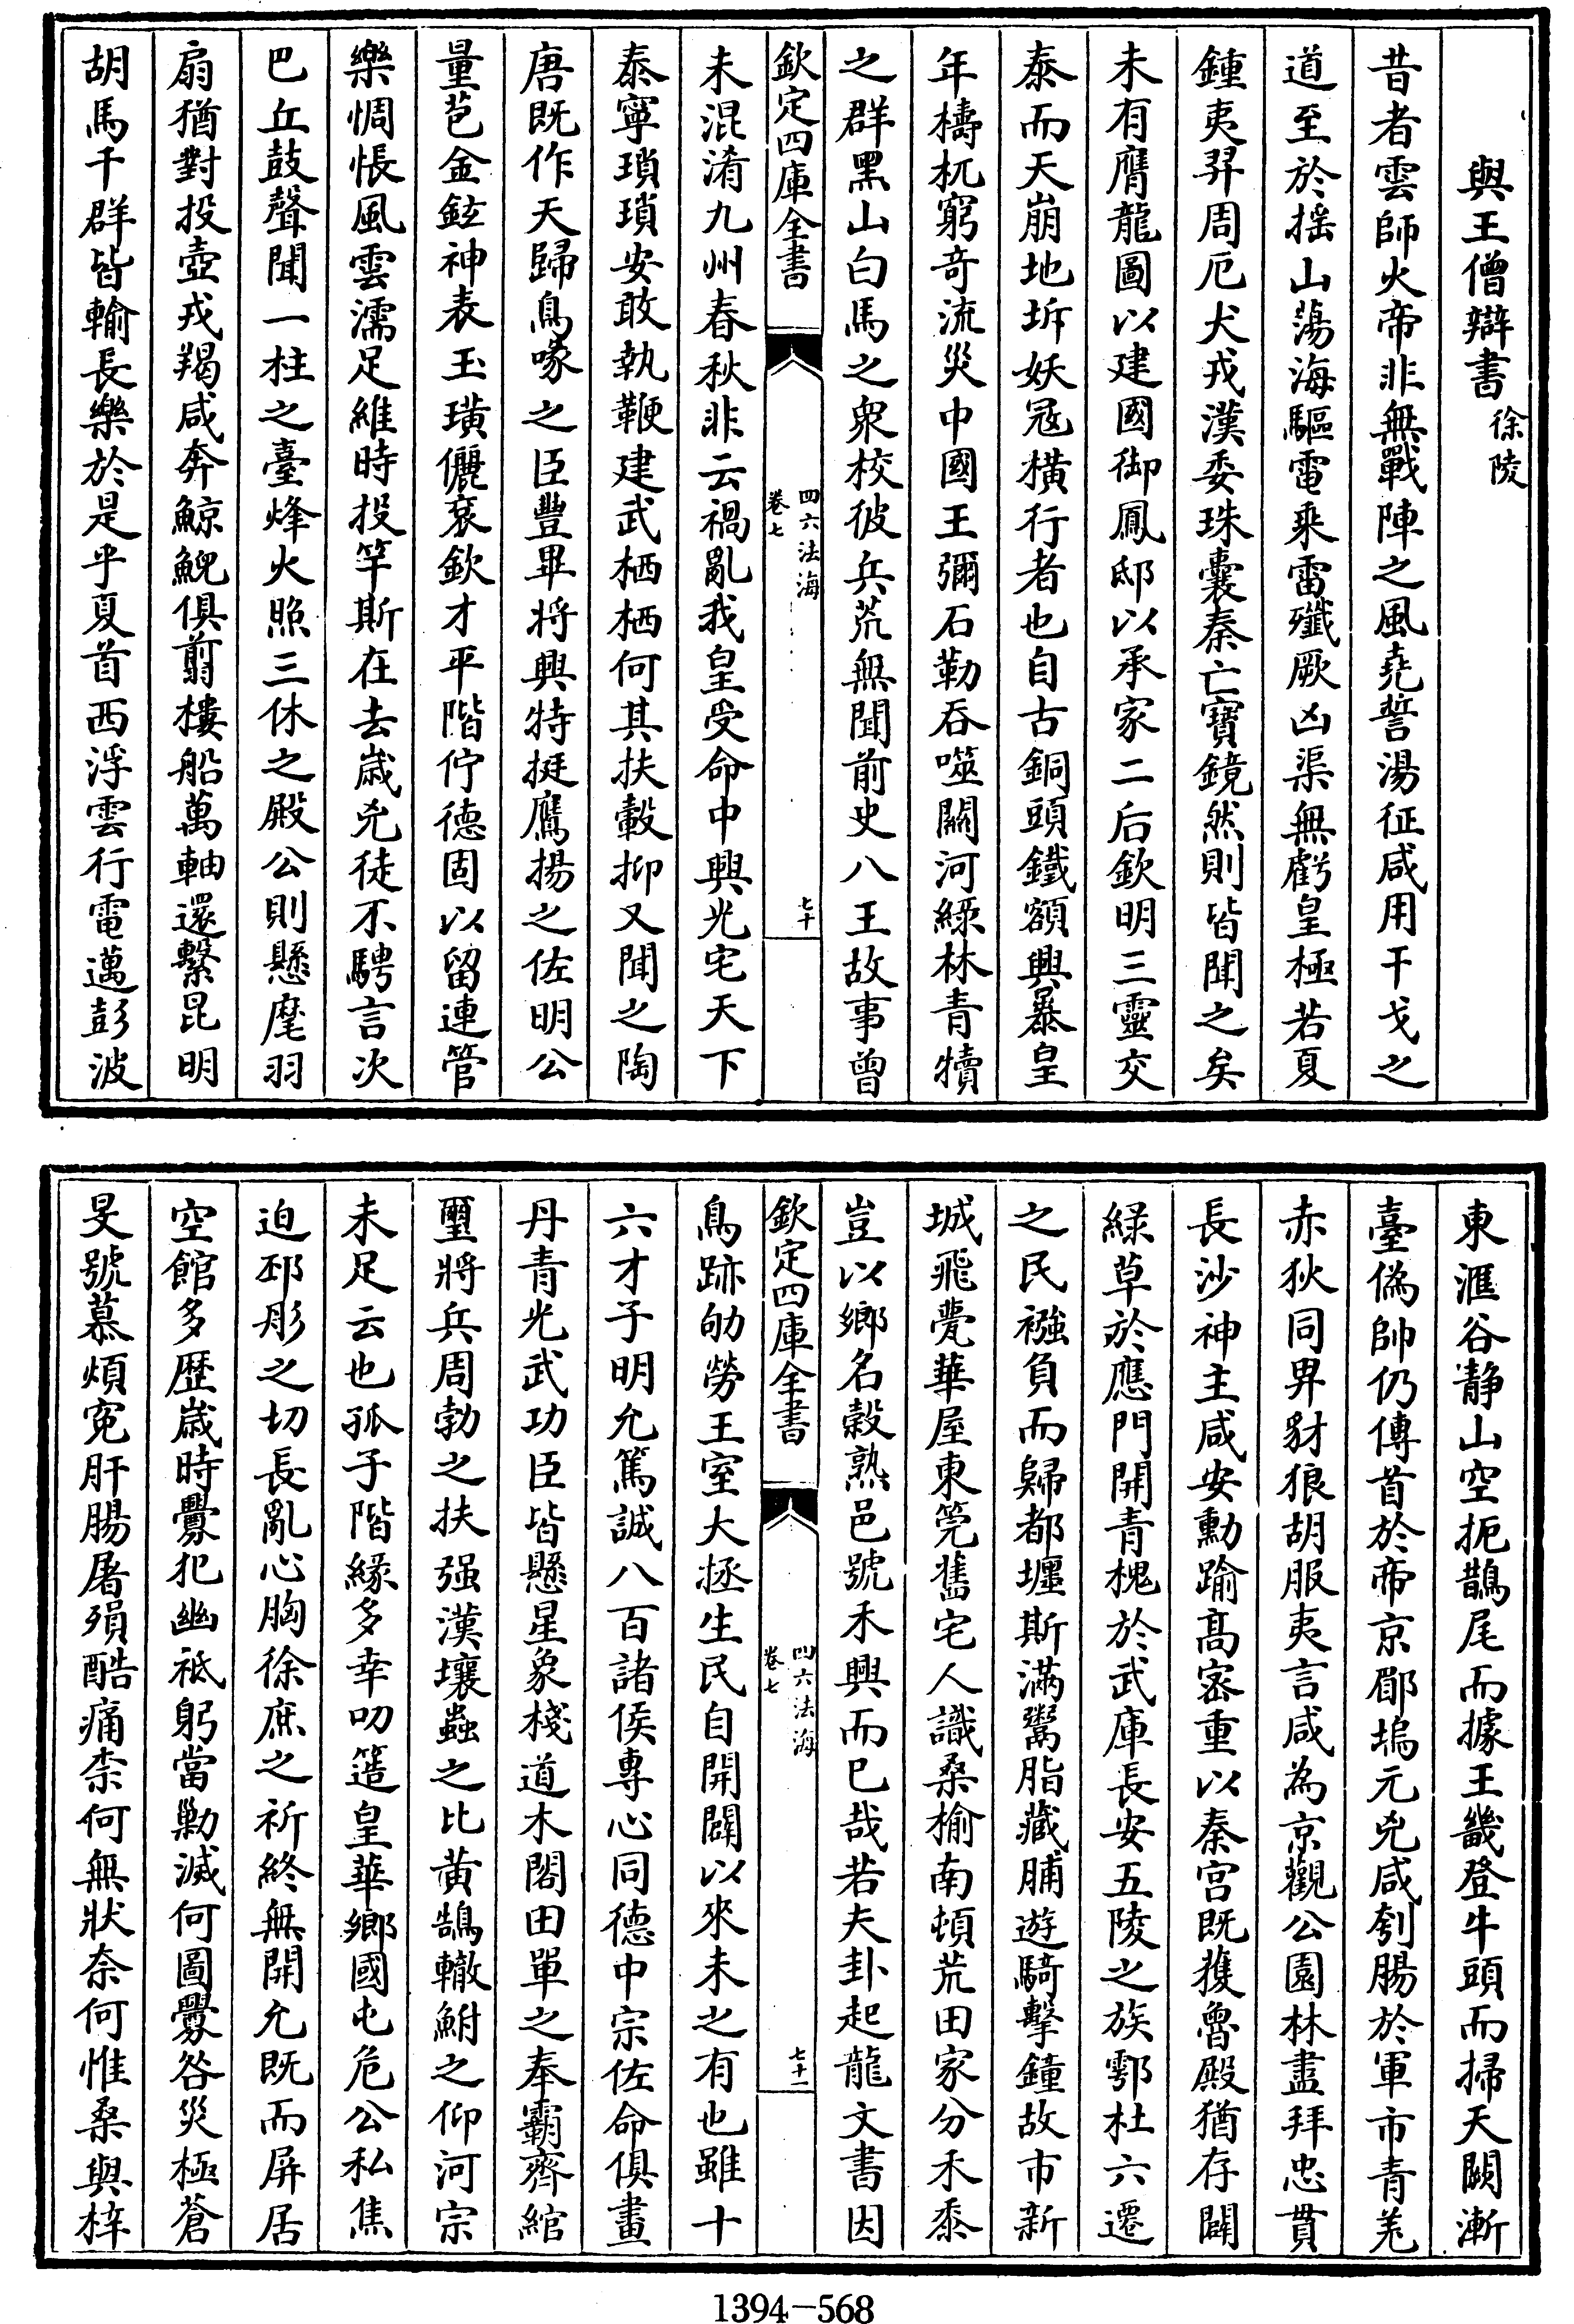 與王僧辯書 徐陵
昔者雲師火帝非無戰陣之風堯誓湯征咸用干戈之
道至於揺山蕩海驅電乘雷殲厥凶渠無虧皇極若夏
鍾夷羿周厄犬戎漢委珠囊秦亡寶鏡然則皆聞之矣
未有膺龍圖以建國御鳳邸以承家二后欽明三靈交
泰而天崩地坼妖冦橫行者也自古銅頭鐵額興暴皇
年檮杌窮竒流災中國王彌石勒吞噬關河緑林青犢
之群黑山白馬之衆校彼兵荒無聞前史八王故事曾
欽定四庫全書
四六法海
卷七
七十
未混淆九州春秋非云禍亂我皇受命中興光宅天下
泰寧瑣瑣安敢執鞭建武栖栖何其扶轂抑又聞之陶
唐既作天歸鳥喙之臣豐畢將興特挺鷹揚之佐明公
量苞金鉉神表玉璜儷衮欽才平階佇德固以留連管
樂惆悵風雲濡足維時投竿斯在去歲兇徒不騁言次
巴丘鼓聲聞一柱之臺烽火照三休之殿公則懸麾羽
扇猶對投壺戎羯咸奔鯨鯢俱翦樓船萬軸還繫昆明
胡馬千群皆輸長樂於是乎夏首西浮雲行電邁彭波
東滙谷靜山空扼鵲尾而據王畿登牛頭而掃天闕漸
臺偽帥仍傳首於帝京郿塢元兇咸刳腸於軍市青羌
赤狄同畀豺狼胡服夷言咸為京觀公園林盡拜忠貫
長沙神主咸安勳踰髙宻重以秦宫既獲魯殿猶存闢
緑草於應門開青槐於武庫長安五陵之族鄠杜六遷
之民襁負而歸都壃斯滿鬻脂藏脯遊騎擊鐘故市新
城飛甍華屋東筦舊宅人識桑榆南頓荒田家分禾黍
豈以鄉名穀熟邑號禾興而已哉若夫卦起龍文書因
欽定四庫全書
四六法海
卷七
七十一
鳥跡劬勞王室大拯生民自開闢以來未之有也雖十
六才子明允篤誠八百諸侯專心同德中宗佐命俱畫
丹青光武功臣皆懸星象棧道木閣田單之奉霸齊綰
璽將兵周勃之扶强漢壤蟲之比黄鵠轍鮒之仰河宗
未足云也孤子階緣多幸叨簉皇華鄉國屯危公私焦
迫邳彤之切長亂心胸徐庶之祈終無開允既而屏居
空館多歴歲時釁犯幽祗躬當勦滅何圖釁咎災極蒼
旻號慕煩寃肝腸屠殞酷痛柰何無狀奈何惟桑與梓
1394-568